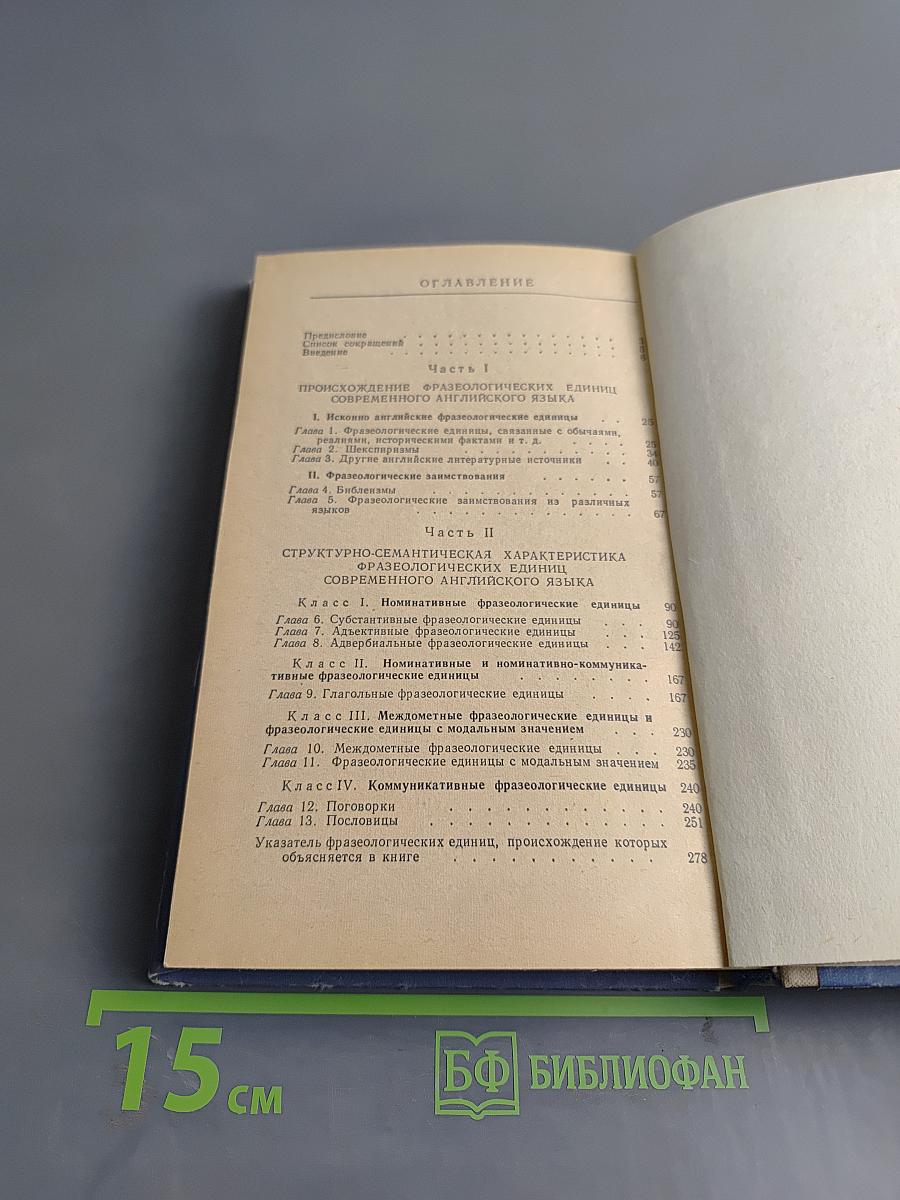 ОГЛАВЛЕНИЕ
Предисловие . . . . . . . . . . . . . 3
Список сокращений . . . . . . . . . . . . 5
Введение . . . . . . . . . . . . . 6
Часть I
ПРОИСХОЖДЕНИЕ ФРАЗЕОЛОГИЧЕСКИХ ЕДИНИЦ
СОВРЕМЕННОГО АНГЛИЙСКОГО ЯЗЫКА
I. Исконно английские фразеологические единицы . . 25
Глава 1. Фразеологические единицы, связанные с обычаями,
реалиями, историческими фактами и т. д. . . . . 25
Глава 2. Шекспиризмы . . . . . . . . . . 34
Глава 3. Другие английские литературные источники . . 40
II. Фразеологические заимствования . . . . . . 57
Глава 4. Библеизмы . . . . . . . . . . . . 57
Глава 5. Фразеологические заимствования из различных
языков . . . . . . . . . . . . . 67
Часть II
СТРУКТУРНО-СЕМАНТИЧЕСКАЯ ХАРАКТЕРИСТИКА
ФРАЗЕОЛОГИЧЕСКИХ ЕДИНИЦ
СОВРЕМЕННОГО АНГЛИЙСКОГО ЯЗЫКА
Класс I. Номинативные фразеологические единицы 90
Глава 6. Субстантивные фразеологические единицы . . . 90
Глава 7. Адъективные фразеологические единицы . . . 125
Глава 8. Адвербиальные фразеологические единицы . . . 142
Класс II. Номинативные и номинативно-коммуника-
тивные фразеологические единицы . . . . . . . 167
Глава 9. Глагольные фразеологические единицы . . . . 167
Класс III. Междометные фразеологические единицы и
фразеологические единицы с модальным значением . . . 230
Глава 10. Междометные фразеологические единицы . . . 230
Глава 11. Фразеологические единицы с модальным значением 235
Класс IV. Коммуникативные фразеологические единицы 240
Глава 12. Поговорки . . . . . . . . . . . 240
Глава 13. Пословицы . . . . . . . . . . . . 251
Указатель фразеологических единиц, происхождение которых
объясняется в книге . . . . . . . . . . 278
15 см
БФ БИБЛИОФАН